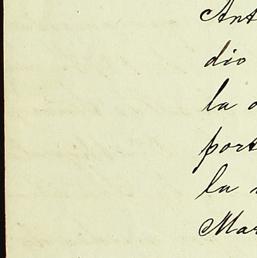 Ant
dio
la
port
la
Mar